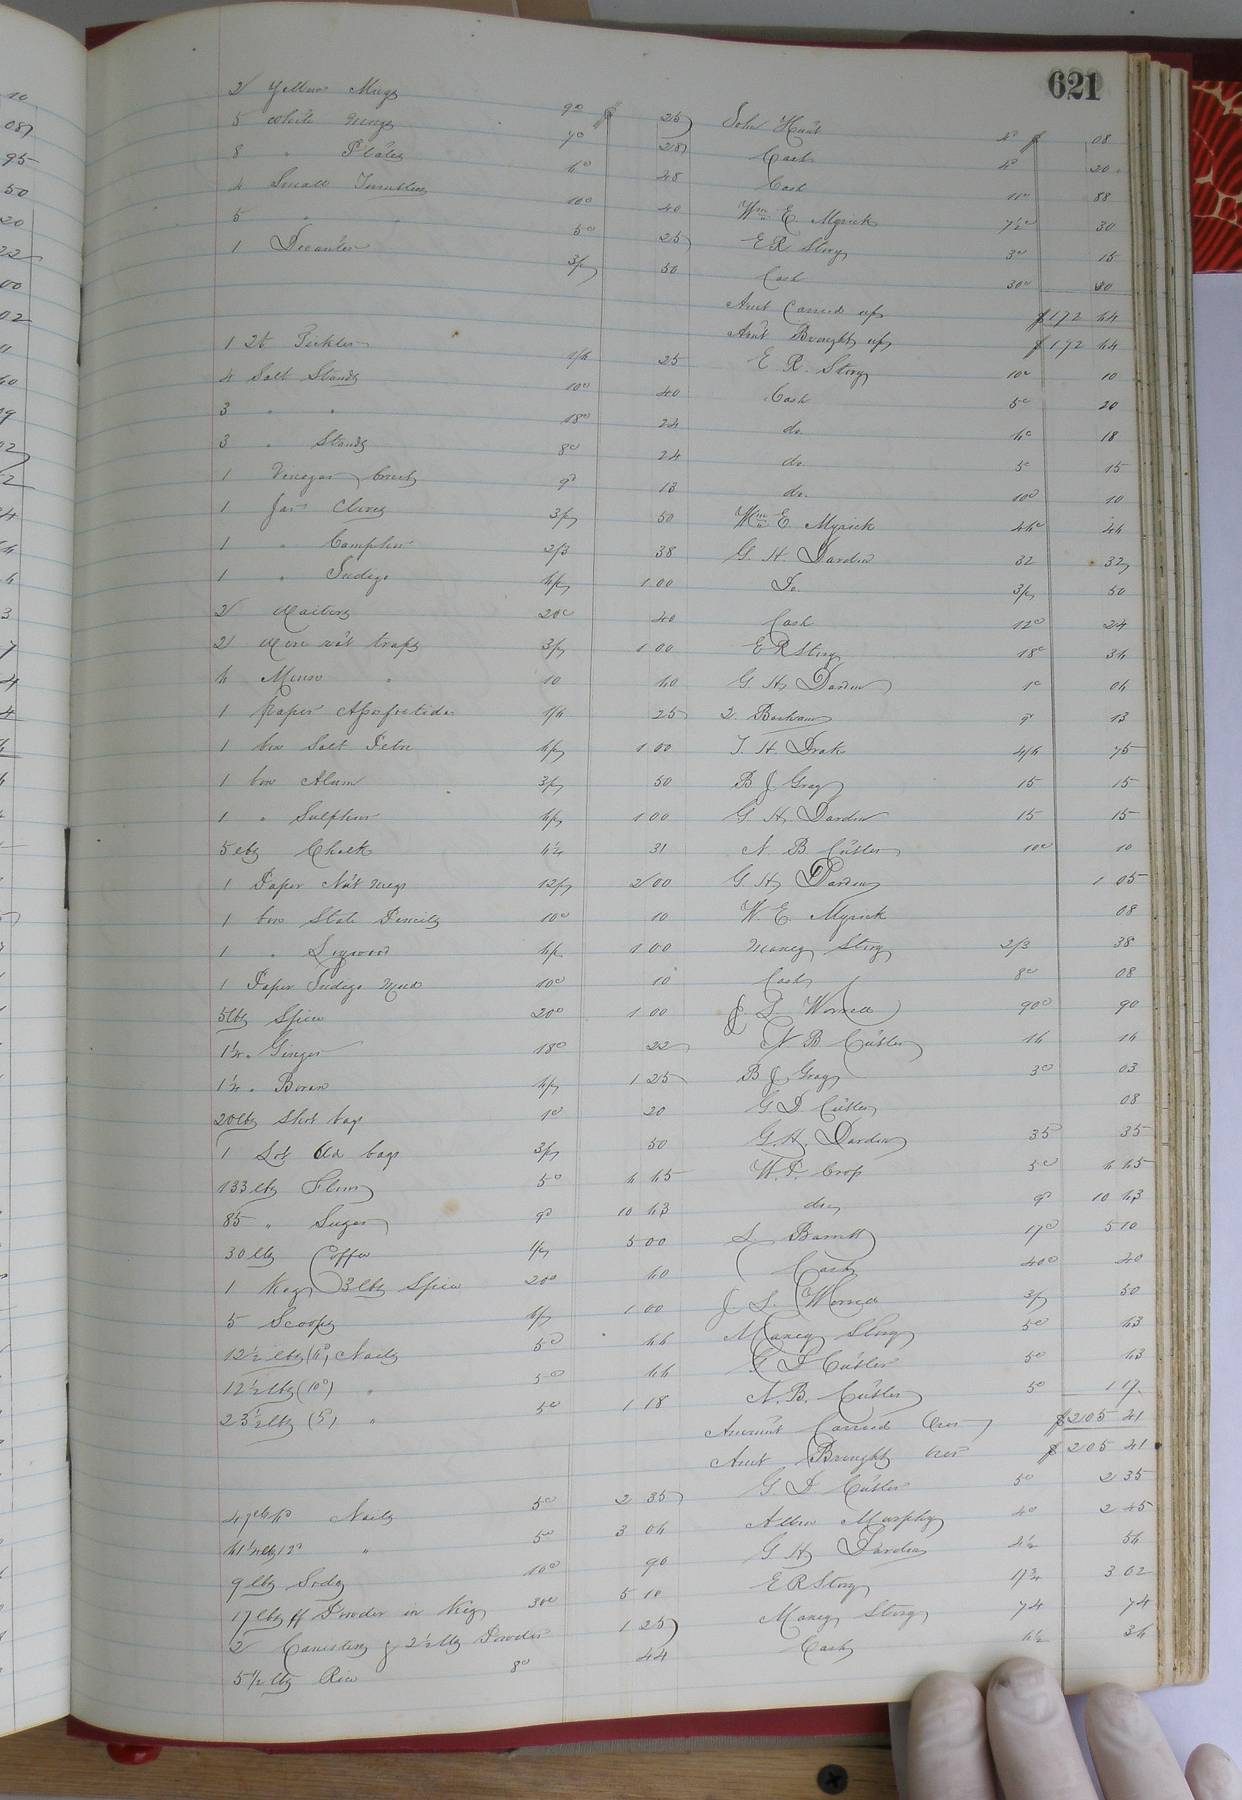 621
2 Yellow Mugs 9d $ 25 John Hunt 4c $ 08
5 White Mugs 7d 28 Cash 4c 20
8 " Plates 6c 48 Cash 11c 88
4 Small Tumblers 10c 40 Wm E. Myrick 7½c 30
5 " " 5c 25 E R Story 3c 15
1 Decanter 3/ 50 Cash 30c 30
Amt Carried up $172 64
Amt Brought up $172 64
1 2t Pickles 1/6 25 E. R. Story 10c 10
4 Salt Stands 10c 40 Cash 5c 20
3 " " 18c 24 do. 6c 18
3 " Stands 8c 24 do. 5c 15
1 Vinegar Cruet 9d 13 do. 10c 10
1 Jar Cloves 3/ 50 Wm E. Myrick 44c 44
1 " Camphor 2/3 38 G. H. Darden 32 32
1 " Indigo 6/ 1 00 Do. 3/ 50
2 Waiters 20c 40 Cash 12c 24
2 Wire rat traps 3/ 1 00 E R Story 18c 36
4 Mouse " 10 40 G. H. Darden 1c 04
1 paper Assafoetida 1/6 25 Barham 9d 13
1 box Salt Petre 6/ 1 00 T. H. Drake 4/6 75
1 box Alum 3/ 50 B J Gray 15 15
1 " Sulphur 6/ 1 00 G. H. Darden 15 15
5 lbs Chalk 6¼ 31 N. B. Cutler 10c 10
1 Paper Nutmegs 12/ 2 00 G. H. Darden 1 05
1 box Slate Pencils 10c 10 W. E. Myrick 08
1 " Logwood 6/ 1 00 Maney Story 2/3 38
1 Paper Indigo Mud 10c 10 Cash 8c 08
5 lbs Spice 20c 1 00 J. L. Worrell 90c 90
1¼ " Ginger 18c 22 N. B Cutler 16 16
1¼ " Borax 6/ 1 25 B J Gray 3c 03
20 lbs Shot bags 1c 20 G. D Cutler 08
1 Lot Old bags 3/ 50 G. H. Darden 35 35
133 lbs Flour 5c 6 65 W. F. Crop 5c 6 65
85 " Sugar 9d 10 63 do. 9d 10 63
30 lbs Coffee 1/ 5 00 L Barrett 17c 5 10
1 Keg 3 lbs Spice 20c 60 Cash 40c 40
5 Scoops 6/ 1 00 J L. Worrell 3/ 50
12½ lbs (4d) Nails 5c 66 Maney Story 5c 63
12½ lbs (10d) " 5c 66 G D Cutler 5c 63
23½ lbs (5d) " 5c 1 18 N. B. Cutler 5c 1 17
Amount Carried Over $205 41
Amt Brought Over $205 41
47 lbs Nails 5c 2 35 G D Cutler 5c 2 35
61½ lbs 12d " 5c 3 06 Albin Murphy 4c 2 45
9 lbs Soda 10c 90 G H Darden 54
17 lbs ff Powder in Keg 30c 5 10 E R Story 17¾ 3 02
2 Canisters & 2½ lbs Powder 1 25 Maney Story 74 74
5½ lbs Rice 8c 44 Cash 6½ 36